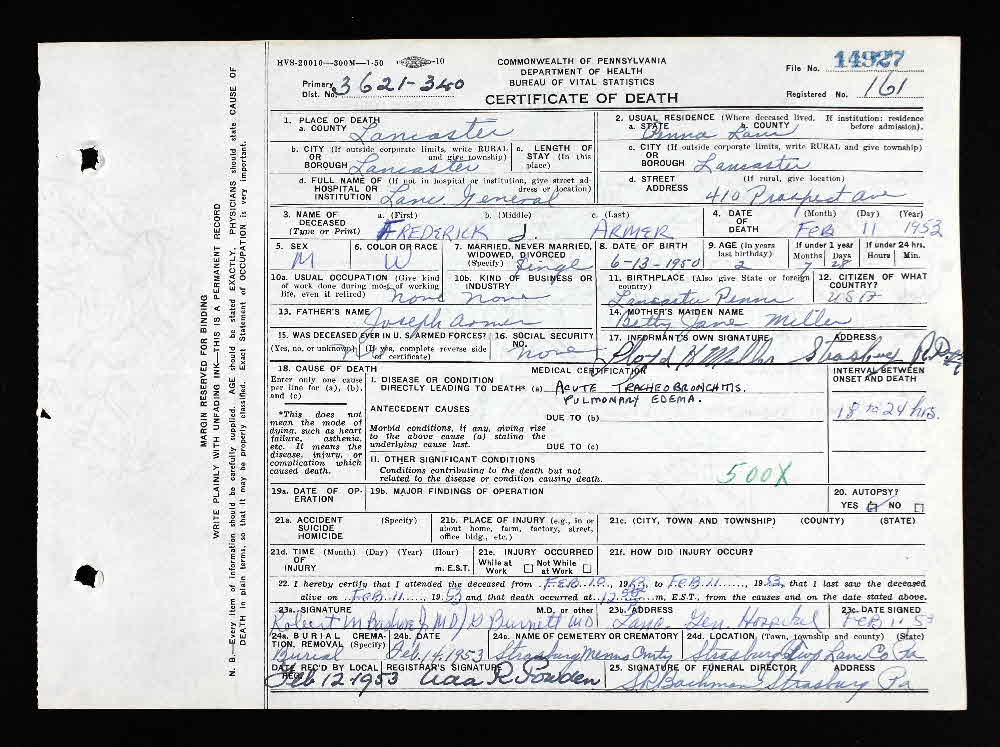 HVS-20010—300M—1-50 -10
COMMONWEALTH OF PENNSYLVANIA
DEPARTMENT OF HEALTH
BUREAU OF VITAL STATISTICS
CERTIFICATE OF DEATH
File No. 14927
Primary Dist. No. 3621-340
Registered No. 161
1. PLACE OF DEATH
a. COUNTY Lancaster
2. USUAL RESIDENCE (Where deceased lived. If institution: residence before admission).
a. STATE Penna b. COUNTY Lanc
b. CITY (If outside corporate limits, write RURAL and give township) OR BOROUGH Lancaster
c. LENGTH OF STAY (in this place)
c. CITY (If outside corporate limits, write RURAL and give township) OR BOROUGH Lancaster
d. FULL NAME OF (If not in hospital or institution, give street address or location) HOSPITAL OR INSTITUTION Lanc General
d. STREET ADDRESS (If rural, give location) 410 Prospect Ave
3. NAME OF DECEASED (Type or Print)
a. (First) FREDERICK b. (Middle) J. c. (Last) ARMER
4. DATE OF DEATH (Month) (Day) (Year) FEB 11 1953
5. SEX M
6. COLOR OR RACE W
7. MARRIED, NEVER MARRIED, WIDOWED, DIVORCED (Specify) Single
8. DATE OF BIRTH 6-13-1950
9. AGE (In years last birthday) 2
If under 1 year Months 7 Days 28
If under 24 hrs. Hours Min.
10a. USUAL OCCUPATION (Give kind of work done during most of working life, even if retired) none
10b. KIND OF BUSINESS OR INDUSTRY none
11. BIRTHPLACE (Also give State or foreign country) Lancaster Penna
12. CITIZEN OF WHAT COUNTRY? USA
13. FATHER'S NAME Joseph Armer
14. MOTHER'S MAIDEN NAME Betty Jane Miller
15. WAS DECEASED EVER IN U. S. ARMED FORCES? (Yes, no, or unknown) (If yes, complete reverse side of certificate)
16. SOCIAL SECURITY NO. none
17. INFORMANT'S OWN SIGNATURE ADDRESS
Lloyd H Miller Strasburg
18. CAUSE OF DEATH
MEDICAL CERTIFICATION
INTERVAL BETWEEN ONSET AND DEATH
Enter only one cause per line for (a), (b), and (c)
I. DISEASE OR CONDITION DIRECTLY LEADING TO DEATH* (a) ACUTE TRACHEOBRONCHITIS.
PULMONARY EDEMA.
18 to 24 hrs.
*This does not mean the mode of dying, such as heart failure, asthenia, etc. It means the disease, injury, or complication which caused death.
ANTECEDENT CAUSES
DUE TO (b)
Morbid conditions, if any, giving rise to the above cause (a) stating the underlying cause last.
DUE TO (c)
II. OTHER SIGNIFICANT CONDITIONS
Conditions contributing to the death but not related to the disease or condition causing death.
500X
19a. DATE OF OPERATION
19b. MAJOR FINDINGS OF OPERATION
20. AUTOPSY?
YES NO
21a. ACCIDENT SUICIDE HOMICIDE (Specify)
21b. PLACE OF INJURY (e.g., in or about home, farm, factory, street, office bldg., etc.)
21c. (CITY, TOWN AND TOWNSHIP) (COUNTY) (STATE)
21d. TIME OF INJURY (Month) (Day) (Year) (Hour) m. E.S.T.
21e. INJURY OCCURRED While at Work Not While at Work
21f. HOW DID INJURY OCCUR?
22. I hereby certify that I attended the deceased from FEB. 10, 1953, to FEB 11, 1953, that I last saw the deceased
alive on FEB 11, 1953 and that death occurred at m, E.S.T., from the causes and on the date stated above.
23a. SIGNATURE M.D. or other
D Burnett MD
23b. ADDRESS Lanc. Gen. Hospital
23c. DATE SIGNED FEB 11 53
24a. BURIAL, CREMATION, REMOVAL (Specify) Burial
24b. DATE Feb. 14, 1953
24c. NAME OF CEMETERY OR CREMATORY Strasburg Menno Cmty
24d. LOCATION (Town, township and county) (State) Strasburg Twp Lanc Co. Pa
DATE REC'D BY LOCAL REG. Feb 12 1953
REGISTRAR'S SIGNATURE
25. SIGNATURE OF FUNERAL DIRECTOR ADDRESS
Bachman Strasburg Pa
MARGIN RESERVED FOR BINDING
WRITE PLAINLY WITH UNFADING INK—THIS IS A PERMANENT RECORD
N. B.—Every item of information should be carefully supplied. AGE should be stated EXACTLY. PHYSICIANS should state CAUSE OF
DEATH in plain terms, so that it may be properly classified. Exact Statement of OCCUPATION is very important.